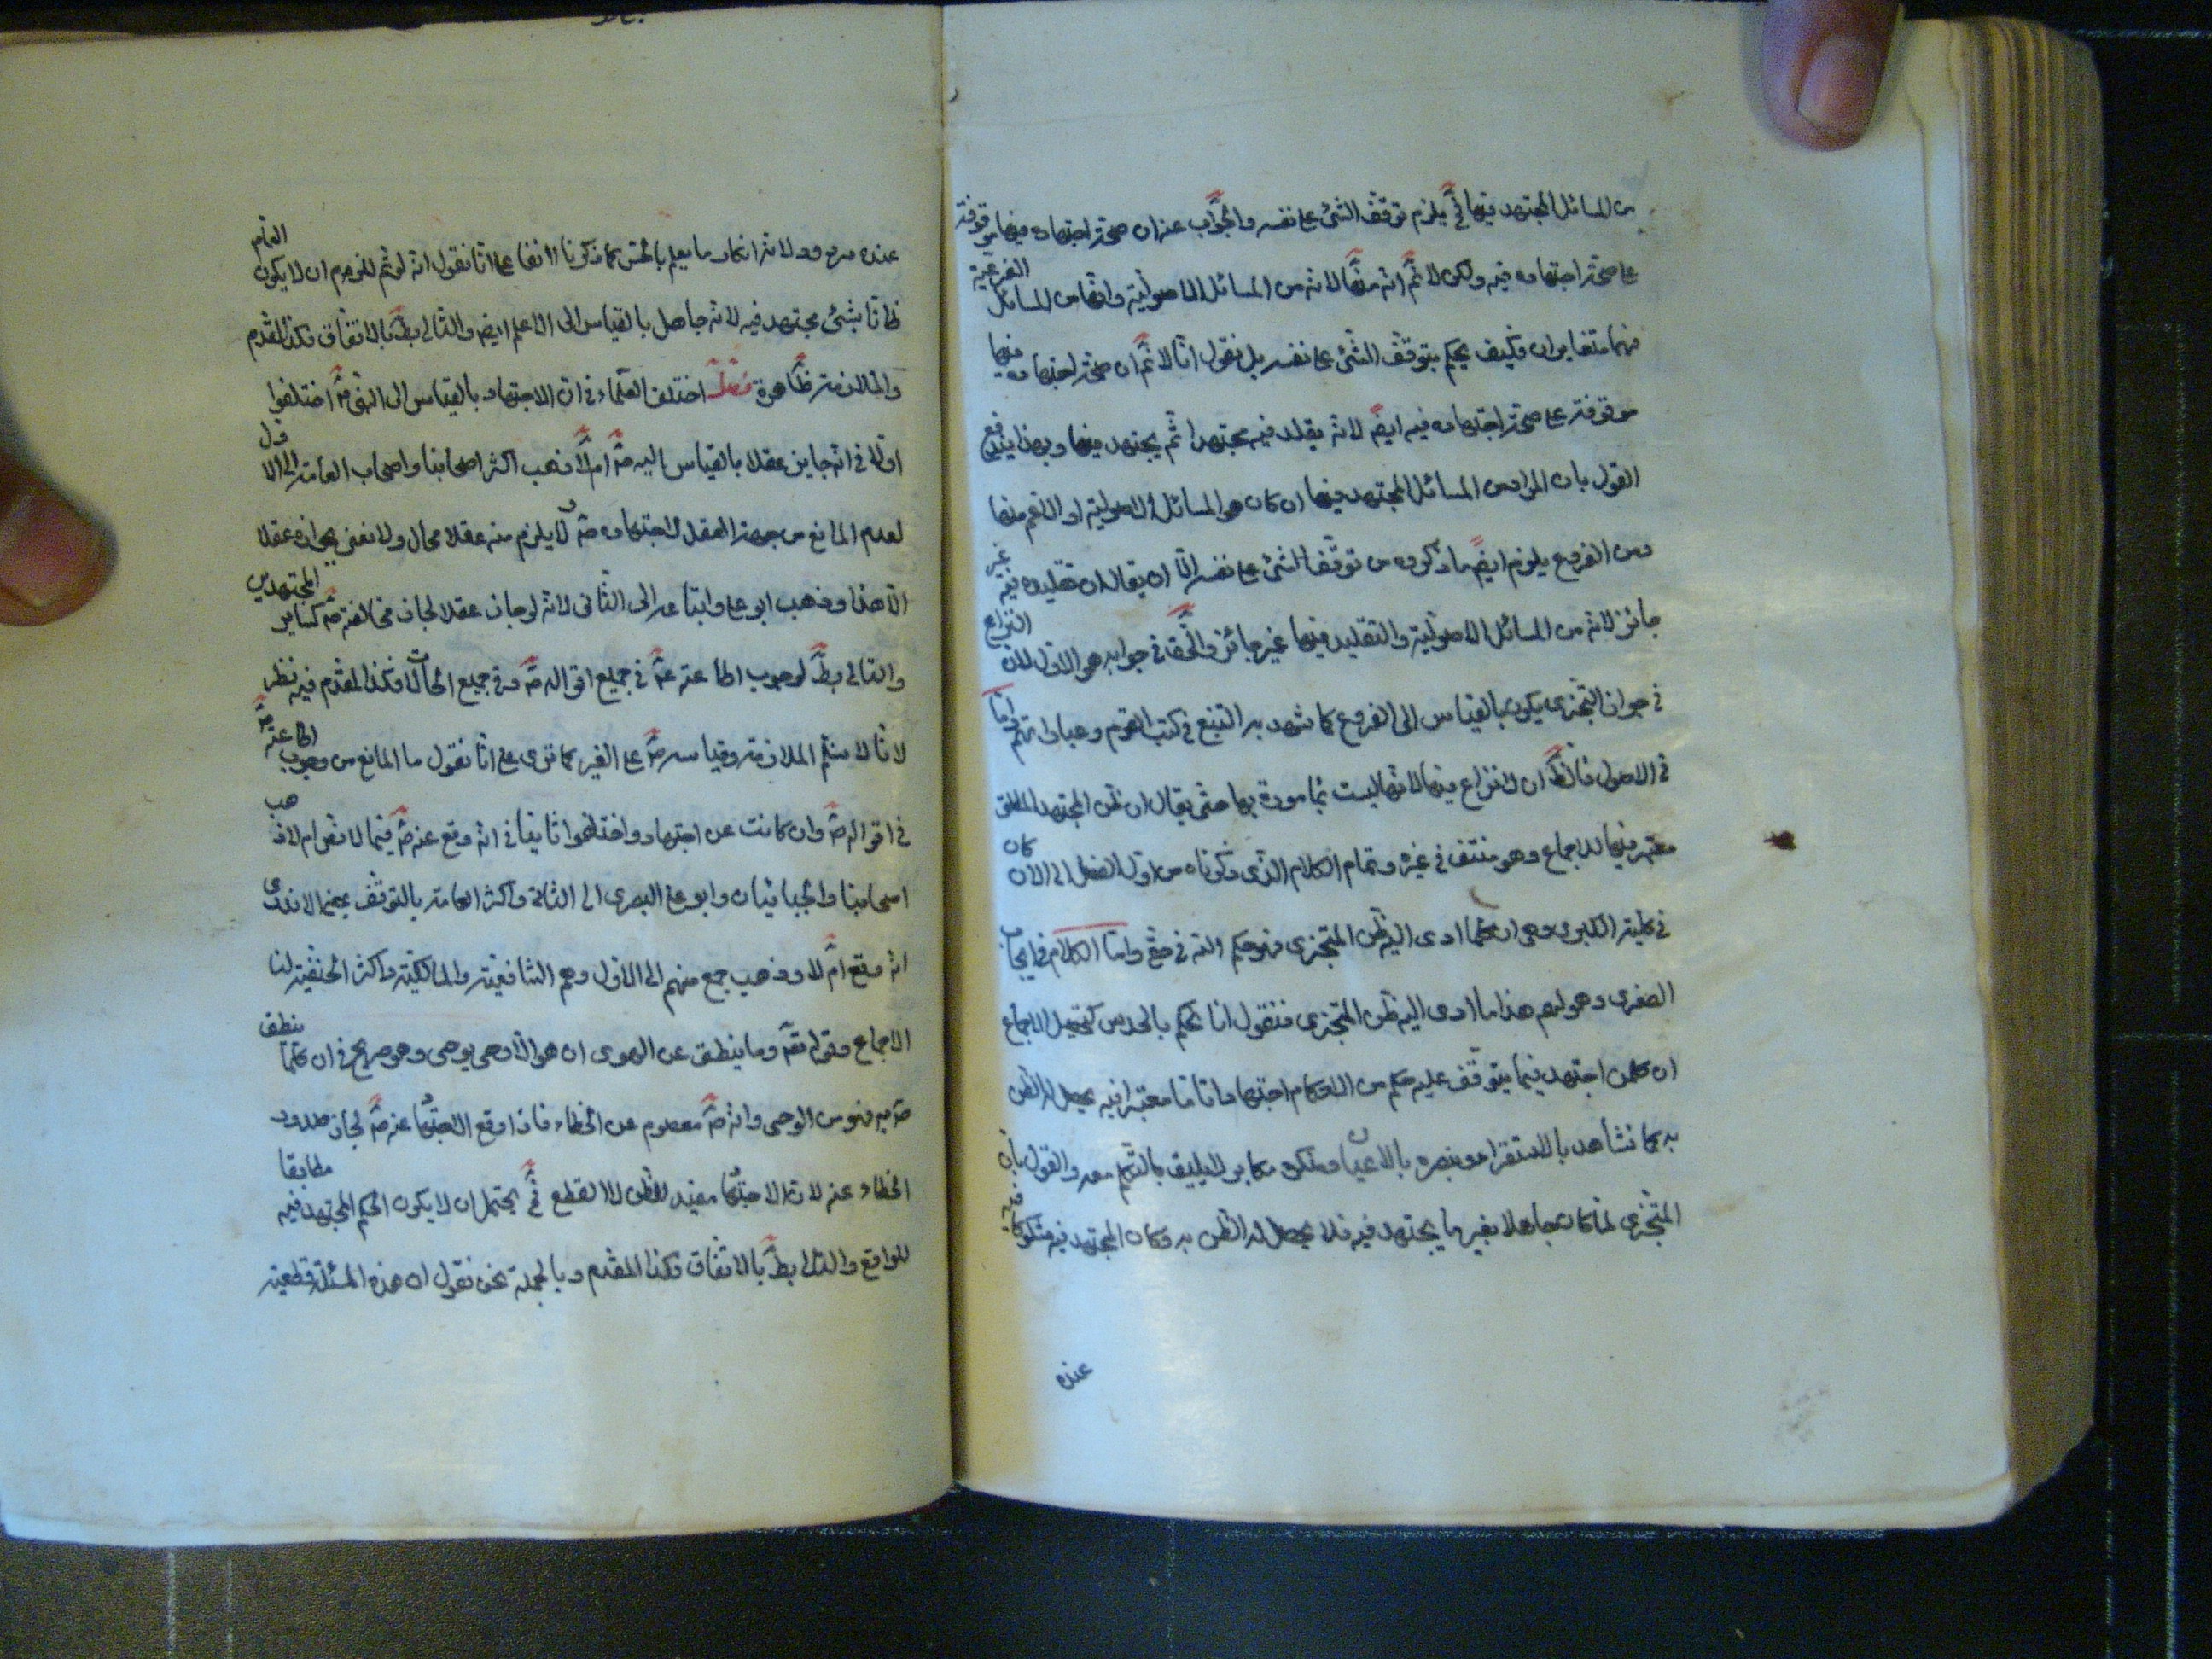 من المسائل المجتهد فيها فح يلزم توقف الشئ على نفسه والجواب عنه ان صحة اجتهاده فيها موقوفة
على صحة اجتهاده فيه ولكن لا نم انه منها لانه من المسائل الاصولية وانها من المسائل الفرعية
فهما متغايران فكيف يحكم بتوقف الشئ على نفسه بل نقول انا لا نم ان صحة اجتهاده فيها
موقوفة على صحة اجتهاده فيه ايض لانه يقلد فيه مجتهدا ثم يجتهد فيها وبهذا يندفع
القول بان المراد من المسائل المجتهد فيها ان كان هو المسائل الاصولية او الاعم منها
ومن الفروع يلزم ايض ما ذكروه من توقف الشئ على نفسه الا ان يقال ان تقليده فيه غير
جائز لانه من المسائل الاصولية والتقليد فيها غير جائز والحق في جوابه هو الاول لان النزاع
في جواز التجزى يكون بالقياس الى الفروع كما شهد به التتبع في كتب القوم وعباراتهم واما
في الاصول فالظ ان لا نزاع فيها لانها ليست بمامورة بها حتى يقال ان ظن المجتهد المطلق
معتبر فيها للاجماع وهو منتف في غيره وتمام الكلام الذى ذكرناه من اول الفصل الى الان كان
في كلية الكبرى وهى ان كلما ادى اليه ظن المتجزى فهو حكم الله في حقه واما الكلام في ايجاب
الصغرى وهو قولهم هذا ما ادى اليه ظن المتجزى فنقول انا نحكم بالحدس كتحصيل الاجماع
ان كل من اجتهد فيما يتوقف عليه حكم من الاحكام اجتهادا تاما معتبرا فيه يحصل له الظن
به كما نشاهد بالاستقراء ونبصره بالاعيان ومنكره مكابر لا يليق بالتكلم معه والقول بان
المتجزى لما كان جاهلا بغير ما يجتهد فيه فلا يحصل له الظن به وكان المجتهد فيه مشكوكا فيه
عنده
عنده مردود لانه انكار ما يعلم بالحس كما ذكرنا انفا على انا نقول انه لو تم للزم ان لا يكون العالم
ظانا بشئ مجتهد فيه لانه جاهل بالقياس الى الاعلم ايض والتالى بط بالاتفاق فكذا المقدم
والملازمة ظاهرة فصل اختلف العلماء في ان الاجتهاد بالقياس الى النبى ص اختلفوا
اولا في انه جايز عقلا بالقياس اليه ص ام لا فذهب اكثر اصحابنا واصحاب العامة الى الاول
لعدم المانع من جهة العقل لاجتهاده ص اذ لا يلزم منه عقلا محال ولا نعنى بجوازه عقلا
الا هذا وذهب ابو على واتباعه الى الثانى لانه لو جاز عقلا لجاز مخالفته ص كساير المجتهدين
والتالى بط لوجوب اطاعته ع في جميع اقواله ص وفي جميع الحالات فكذا المقدم فيه نظر
لانا لا نسلم الملازمة وقياسه ص على الغير كما ترى على انا نقول ما المانع من وجوب اطاعته ص
في اقواله ص وان كانت عن اجتهاد واختلفوا ثانيا في انه وقع عنه ص فيما لا نص ام لا فذهب
اصحابنا والجبائيان وابو على البصرى الى الثانى واكثر العامة بالتوقف بمعنى لا ندرى
انه وقع ام لا وذهب جمع منهم الى الاول وهم الشافعية والمالكية واكثر الحنفية لنا
الاجماع وقوله تعه وما ينطق عن الهوى ان هو الا وحى يوحى وهو صريح في ان كلما ينطق
ص به فهو من الوحى وانه ص معصوم عن الخطاء فاذا وقع الاجتهاد عنه ص لجاز صدور
الخطاء عنه لان الاجتهاد مفيد للظن لا القطع فح يحتمل ان لا يكون الحكم المجتهد فيه مطابقا
للواقع والتالى بط بالاتفاق فكذا المقدم وبالجملة نحن نقول ان هذه المسئلة قطعية